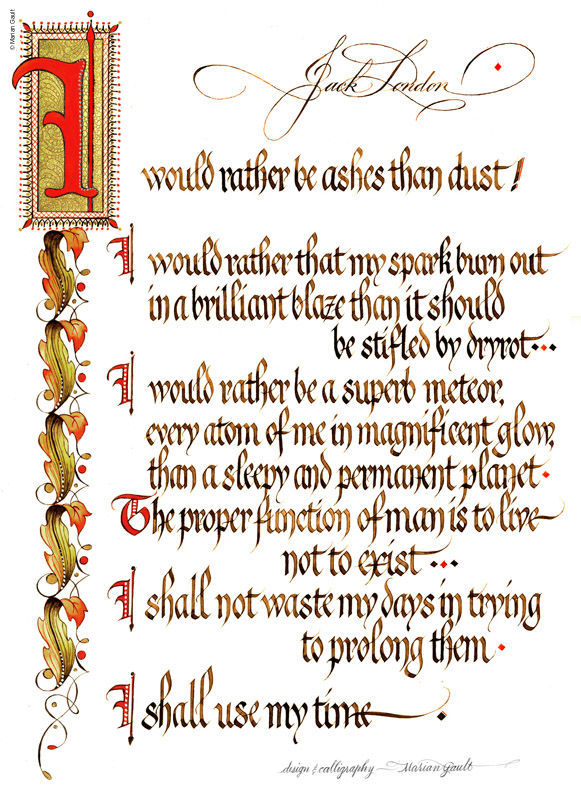 © Marian Gault
Jack London
I would rather be ashes than dust!
I would rather that my spark burn out
in a brilliant blaze than it should
be stifled by dryrot...
I would rather be a superb meteor,
every atom of me in magnificent glow,
than a sleepy and permanent planet.
The proper function of man is to live
not to exist ...
I shall not waste my days in trying
to prolong them.
I shall use my time.
design & calligraphy — Marian Gault